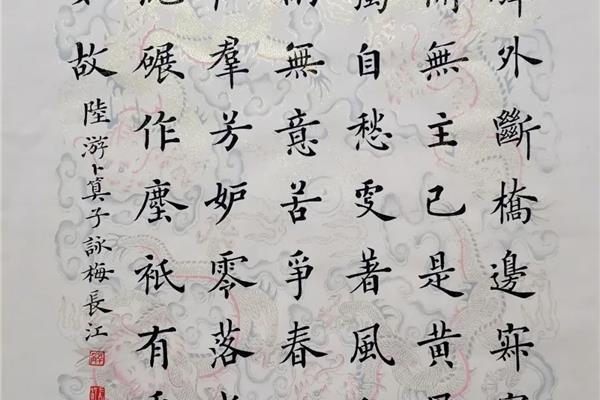 外斷橋邊寂
開無主已是黃
獨自愁更著風
無意苦爭春
羣芳妒零落
泥碾作塵衹有
故
陸游卜算子詠梅長江